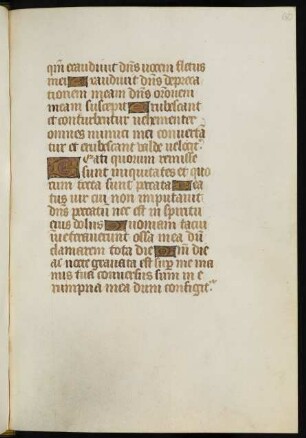 qm̄ exaudiuit dn̄s uocem fletus
mei Exaudiuit dn̄s depreca
tionem meam dn̄s orōnem
meam suscepit Erubescant
et conturbentur uehementer
omnes inimici mei conuertā
tur et erubescant valde uelocit᷑
Beati quorum remisse
sunt iniquitates et quo
rum tecta sunt peccata Bea
tus uir cui non imputauit
dn̄s peccatū nec est in spiritu
eius dolus Quoniam tacui
inueterauerunt ossa mea dū
clamarem tota die Qm̄ die
ac nocte grauata est sup̄ me ma
nus tua conuersus sum in e
rumpna mea dum configit᷑